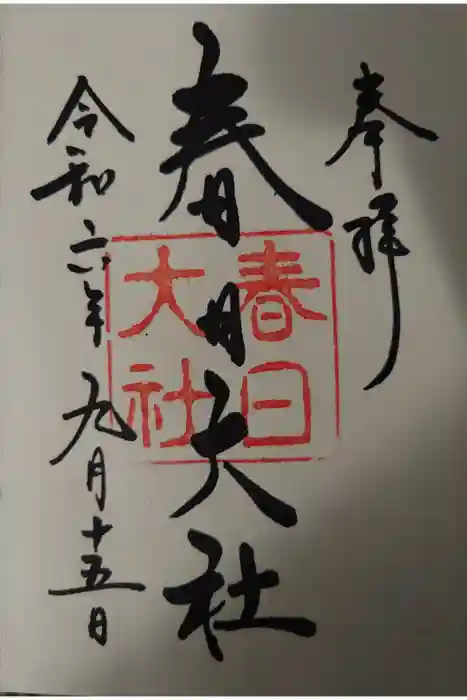 奉拝
春日大社
春日
大社
令和六年九月十五日